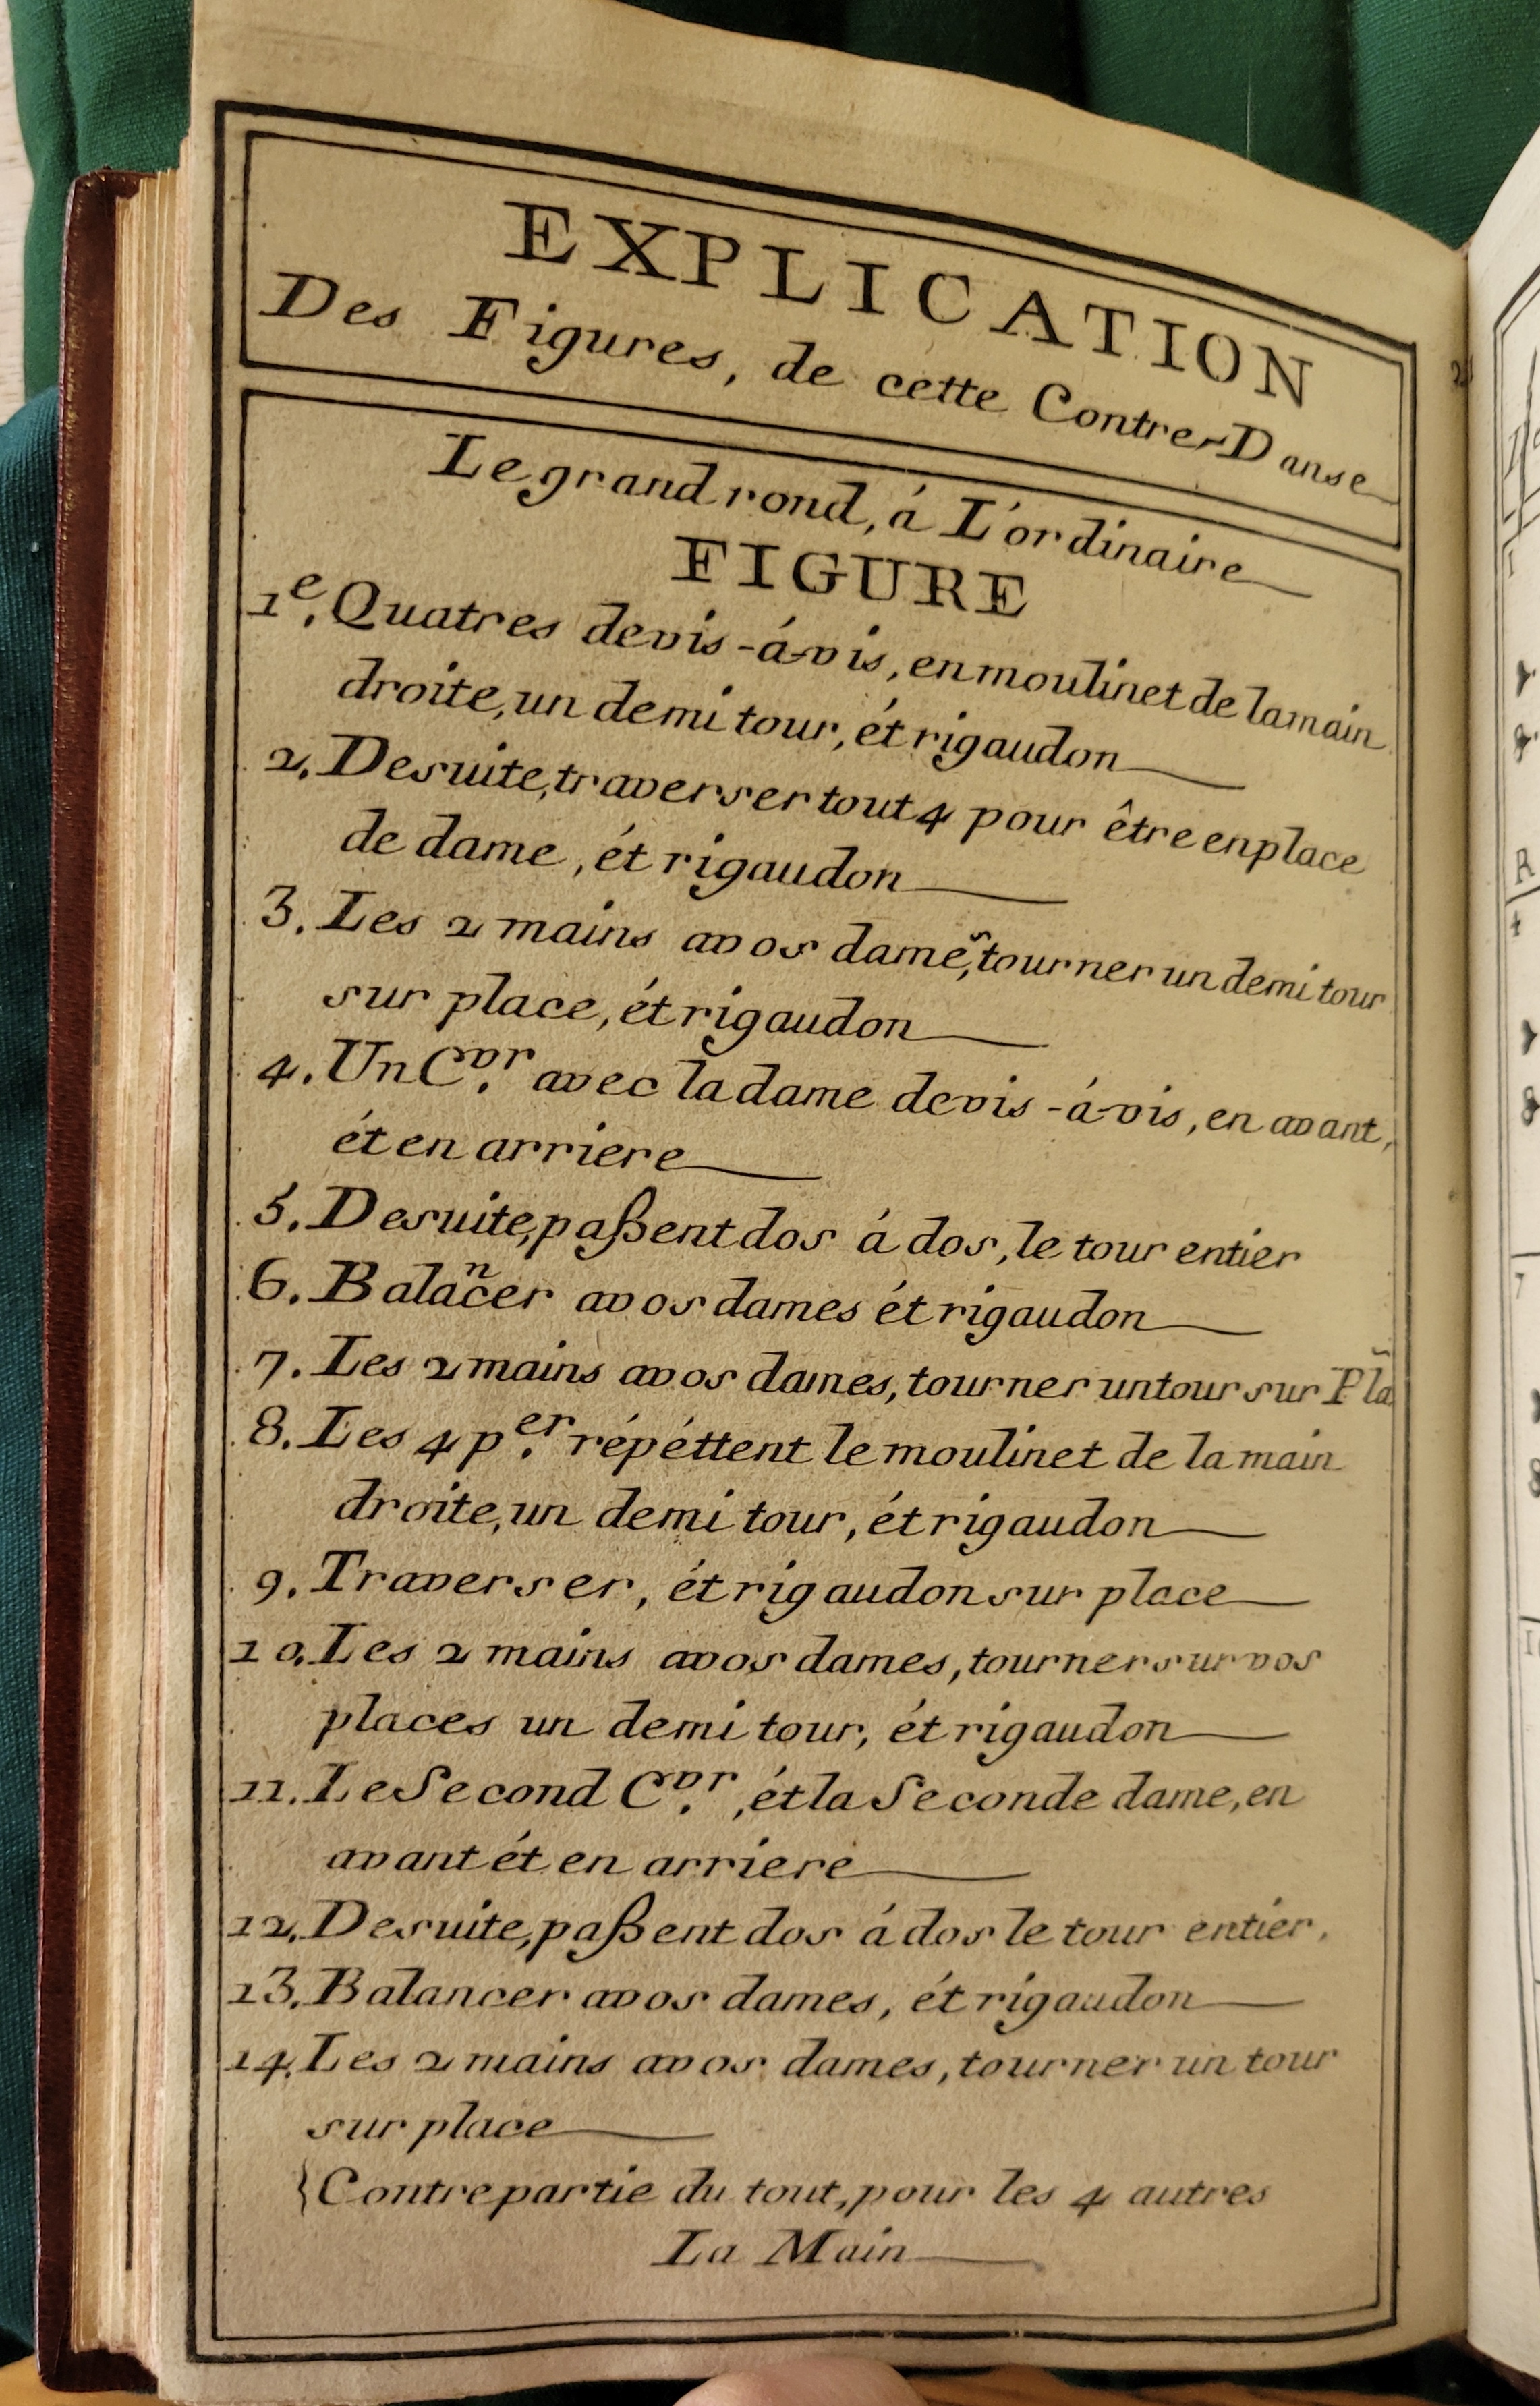 EXPLICATION
Des Figures, de cette Contre-Danse
Le grand rond, á L'ordinaire
FIGURE
1e. Quatres de vis-á-vis, en moulinet de la main
droite, un demi tour, ét rigaudon
2. De suite, traverser tout 4 pour être en place
de dame, ét rigaudon
3. Les 2 mains a vos dames, tourner un demi tour
sur place, ét rigaudon
4. Un Cvr. avec la dame de vis-á-vis, en avant,
ét en arriere
5. De suite, paßent dos á dos, le tour entier
6. Balancer a vos dames ét rigaudon
7. Les 2 mains a vos dames, tourner un tour sur Pla
8. Les 4 per. répéttent le moulinet de la main
droite, un demi tour, ét rigaudon
9. Traverser, ét rigaudon sur place
10. Les 2 mains a vos dames, tourner sur vos
places un demi tour, ét rigaudon
11. Le Second Cvr., ét la Seconde dame, en
avant ét en arriere
12. De suite, paßent dos á dos le tour entier.
13. Balancer a vos dames, ét rigaudon
14. Les 2 mains a vos dames, tourner un tour
sur place
{Contre partie du tout, pour les 4 autres
La Main